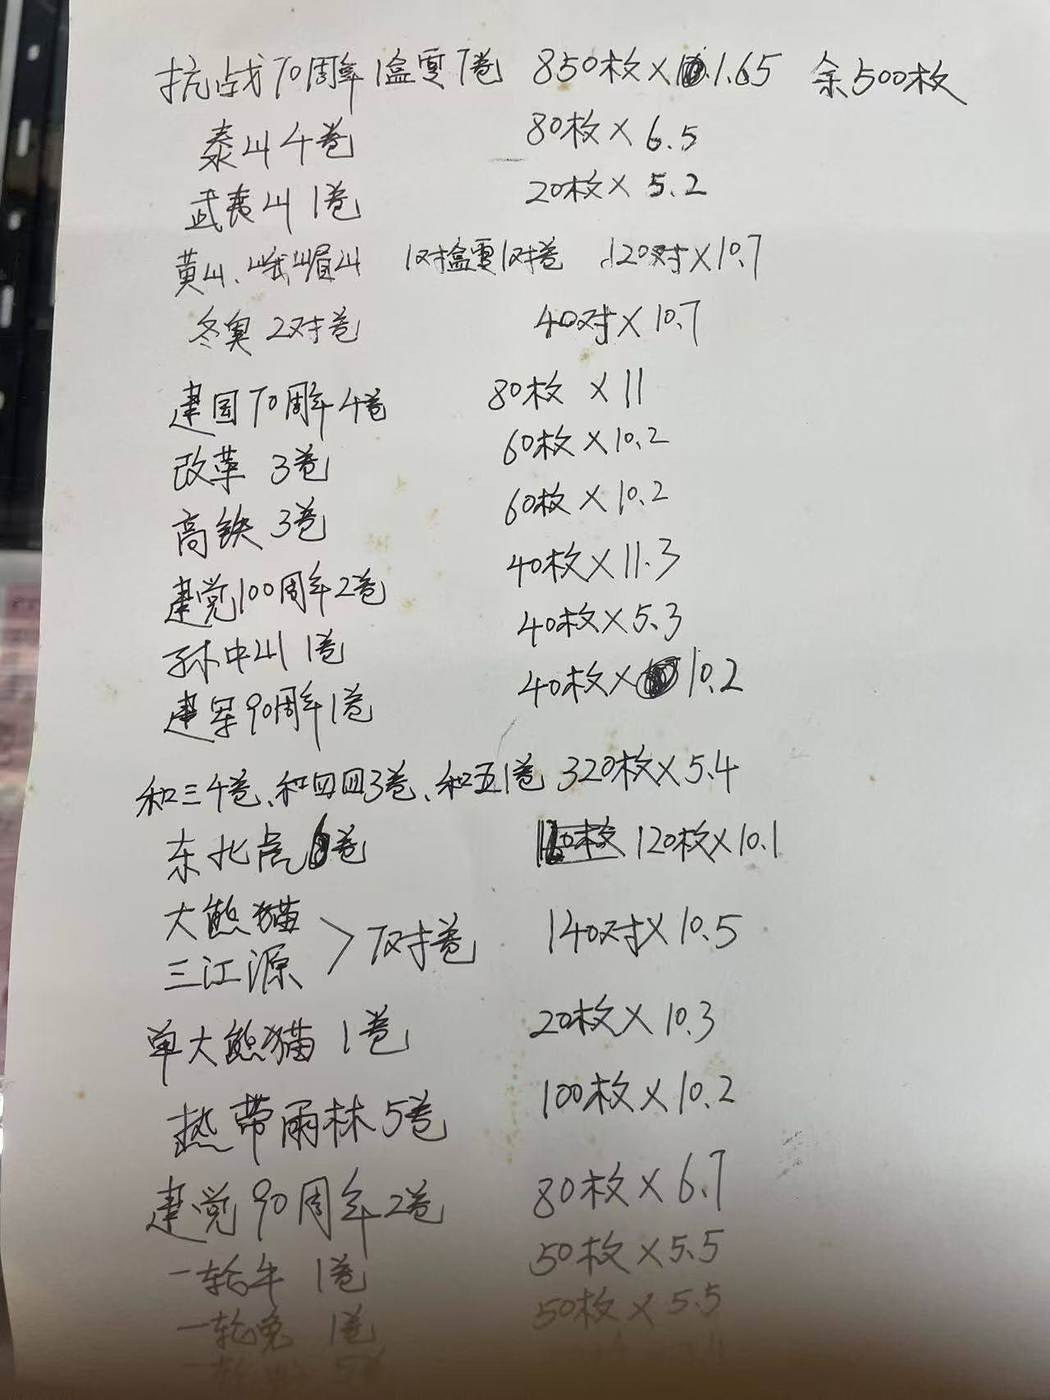 抗战70周年1盒零7卷 850枚×1.65 余500枚
泰山4卷 80枚×6.5
武夷山1卷 20枚×5.2
黄山、峨嵋山 1对盒零1对卷 120对×10.7
冬奥2对卷 40对×10.7
建国70周年4卷 80枚×11
改革3卷 60枚×10.2
高铁3卷 60枚×10.2
建党100周年2卷 40枚×11.3
孙中山1卷 40枚×5.3
建军90周年1卷 40枚×10.2
和三4卷、和四3卷、和五1卷 320枚×5.4
东北虎6卷 120枚×10.1
大熊猫
三江源 >7对卷 140对×10.5
单大熊猫1卷 20枚×10.3
热带雨林5卷 100枚×10.2
建党90周年2卷 80枚×6.7
一轮牛1卷 50枚×5.5
一轮兔1卷 50枚×5.5